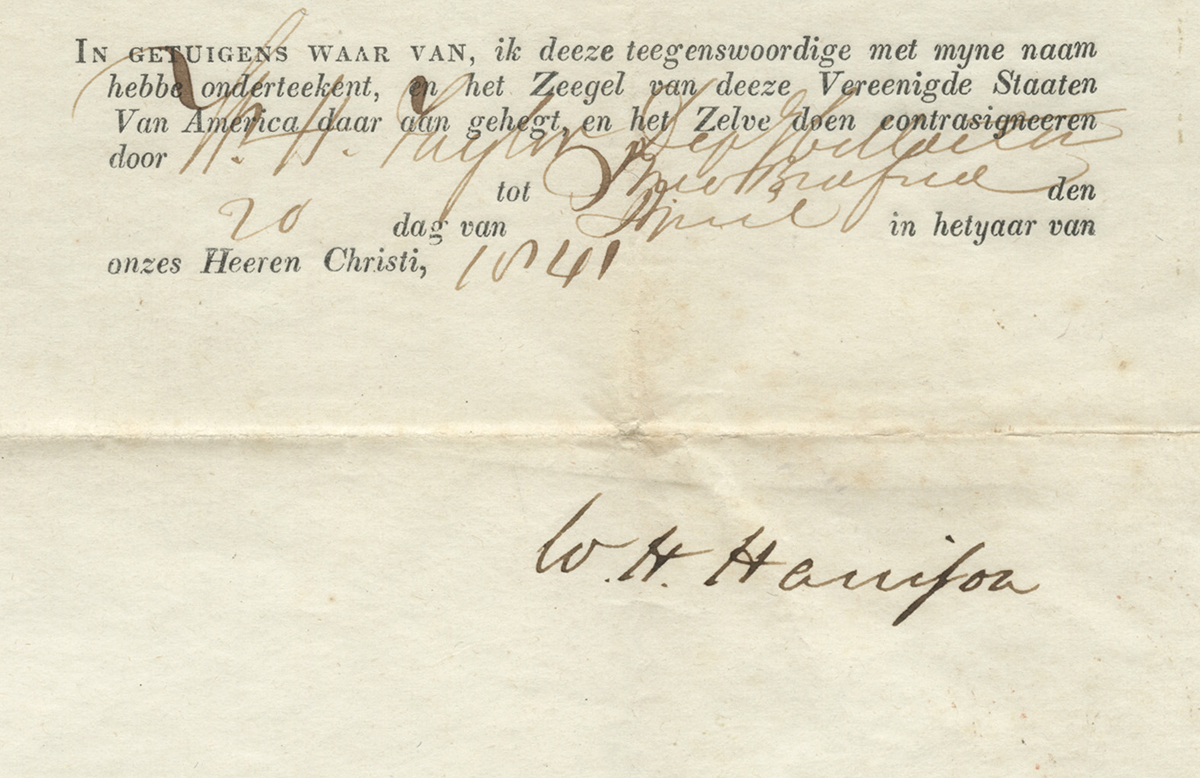 IN GETUIGENS WAAR VAN, ik deeze teegenswoordige met myne naam
hebbe onderteekent, en het Zeegel van deeze Vereenigde Staaten
Van America daar aan gehegt, en het Zelve doen contrasigneeren
door Wm. H. Taylor Dep Collector
tot New Bedford den
20 dag van April in hetyaar van
onzes Heeren Christi, 1841
W. H. Harrison